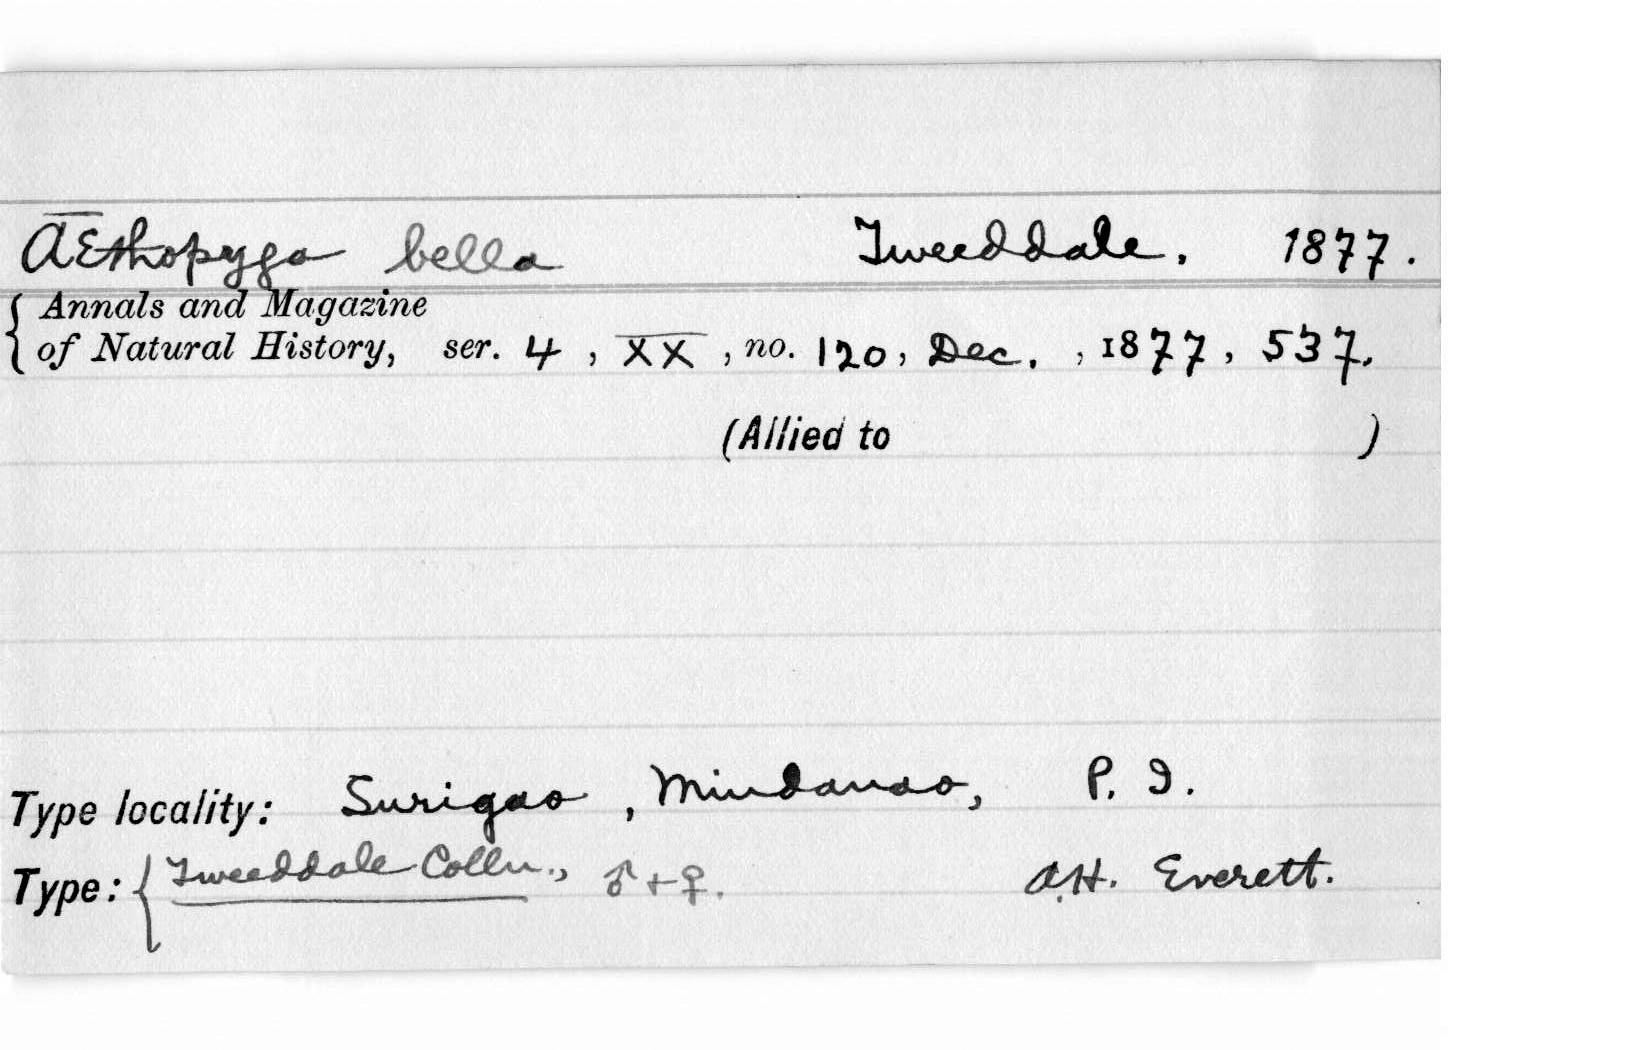 Æthopyga bella Tweeddale. 1877.
{ Annals and Magazine
of Natural History, ser. 4, XX, no. 120, Dec., 1877, 537.
(Allied to )
Type locality: Surigao, Mindanao, P. I.
Type: { Tweeddale Colln., ♂ + ♀. A.H. Everett.